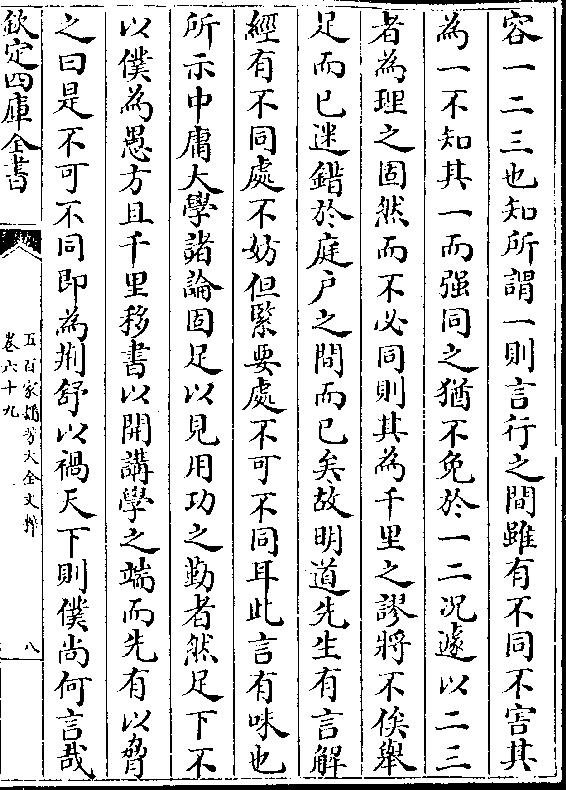 容一二三也知所謂一則言行之間雖有不同不害其
為一不知其一而强同之猶不免於一二況遽以二三
者為理之固然而不必同則其為千里之謬將不俟舉
足而已迷錯於庭户之間而已矣故明道先生有言解
經有不同處不妨但緊要處不可不同耳此言有味也
所示中庸大學諸論固足以見用功之勤者然足下不
以僕為愚方且千里移書以開講學之端而先有以脅
之曰是不可不同即為荆舒以禍天下則僕尚何言哉
欽定四庫全書
五百家播芳大全文粹
卷六十九
八